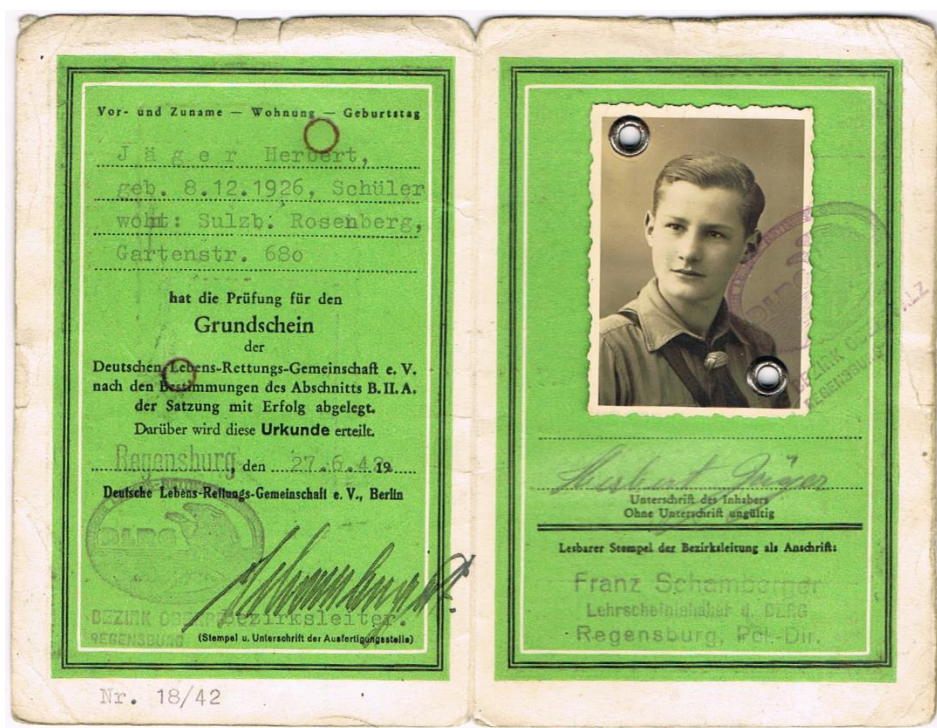 Vor- und Zuname — Wohnung — Geburtstag
Jäger Herbert,
geb. 8.12.1926, Schüler
wohn: Sulzb. Rosenberg,
Gartenstr. 680
hat die Prüfung für den
Grundschein
der
Deutschen Lebens-Rettungs-Gemeinschaft e. V.
nach den Bestimmungen des Abschnitts B. II. A.
der Satzung mit Erfolg abgelegt.
Darüber wird diese Urkunde erteilt.
Regensburg, den 27.6.42 19
Deutsche Lebens-Rettungs-Gemeinschaft e. V., Berlin
DLRG
BEZIRK
REGENSBURG
Bezirksleiter.
(Stempel u. Unterschrift der Ausfertigungsstelle)
Nr. 18/42
DLRG
BEZIRK
REGENSBURG
Herbert Jäger
Unterschrift des Inhabers
Ohne Unterschrift ungültig
Lesbarer Stempel der Bezirksleitung als Anschrift:
Franz Schamberger
Lehrscheininhaber d. DLRG
Regensburg, Pol.-Dir.